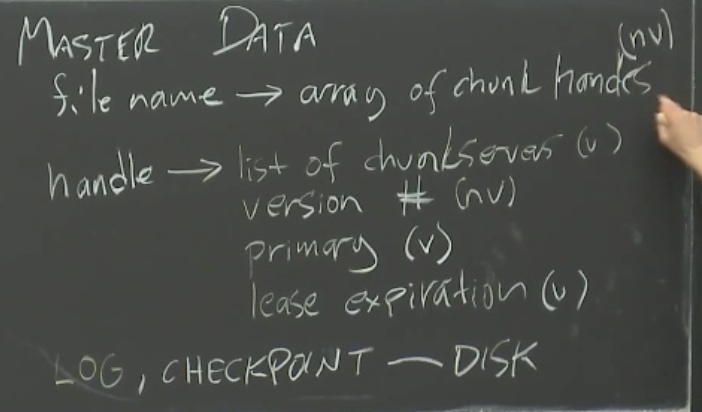 MASTER DATA
(nv)
file name → array of chunk handles
handle → list of chunkservers (v)
version # (nv)
primary (v)
lease expiration (v)
LOG, CHECKPOINT — DISK